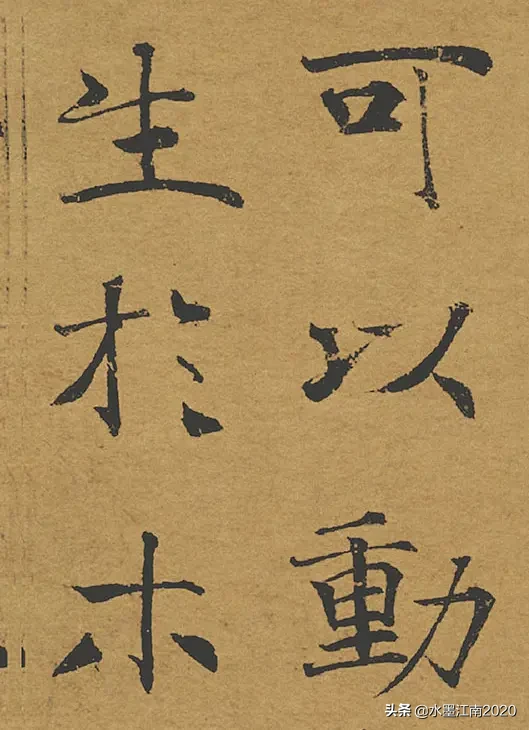 可以動
生於木
头条 @水墨江南2020